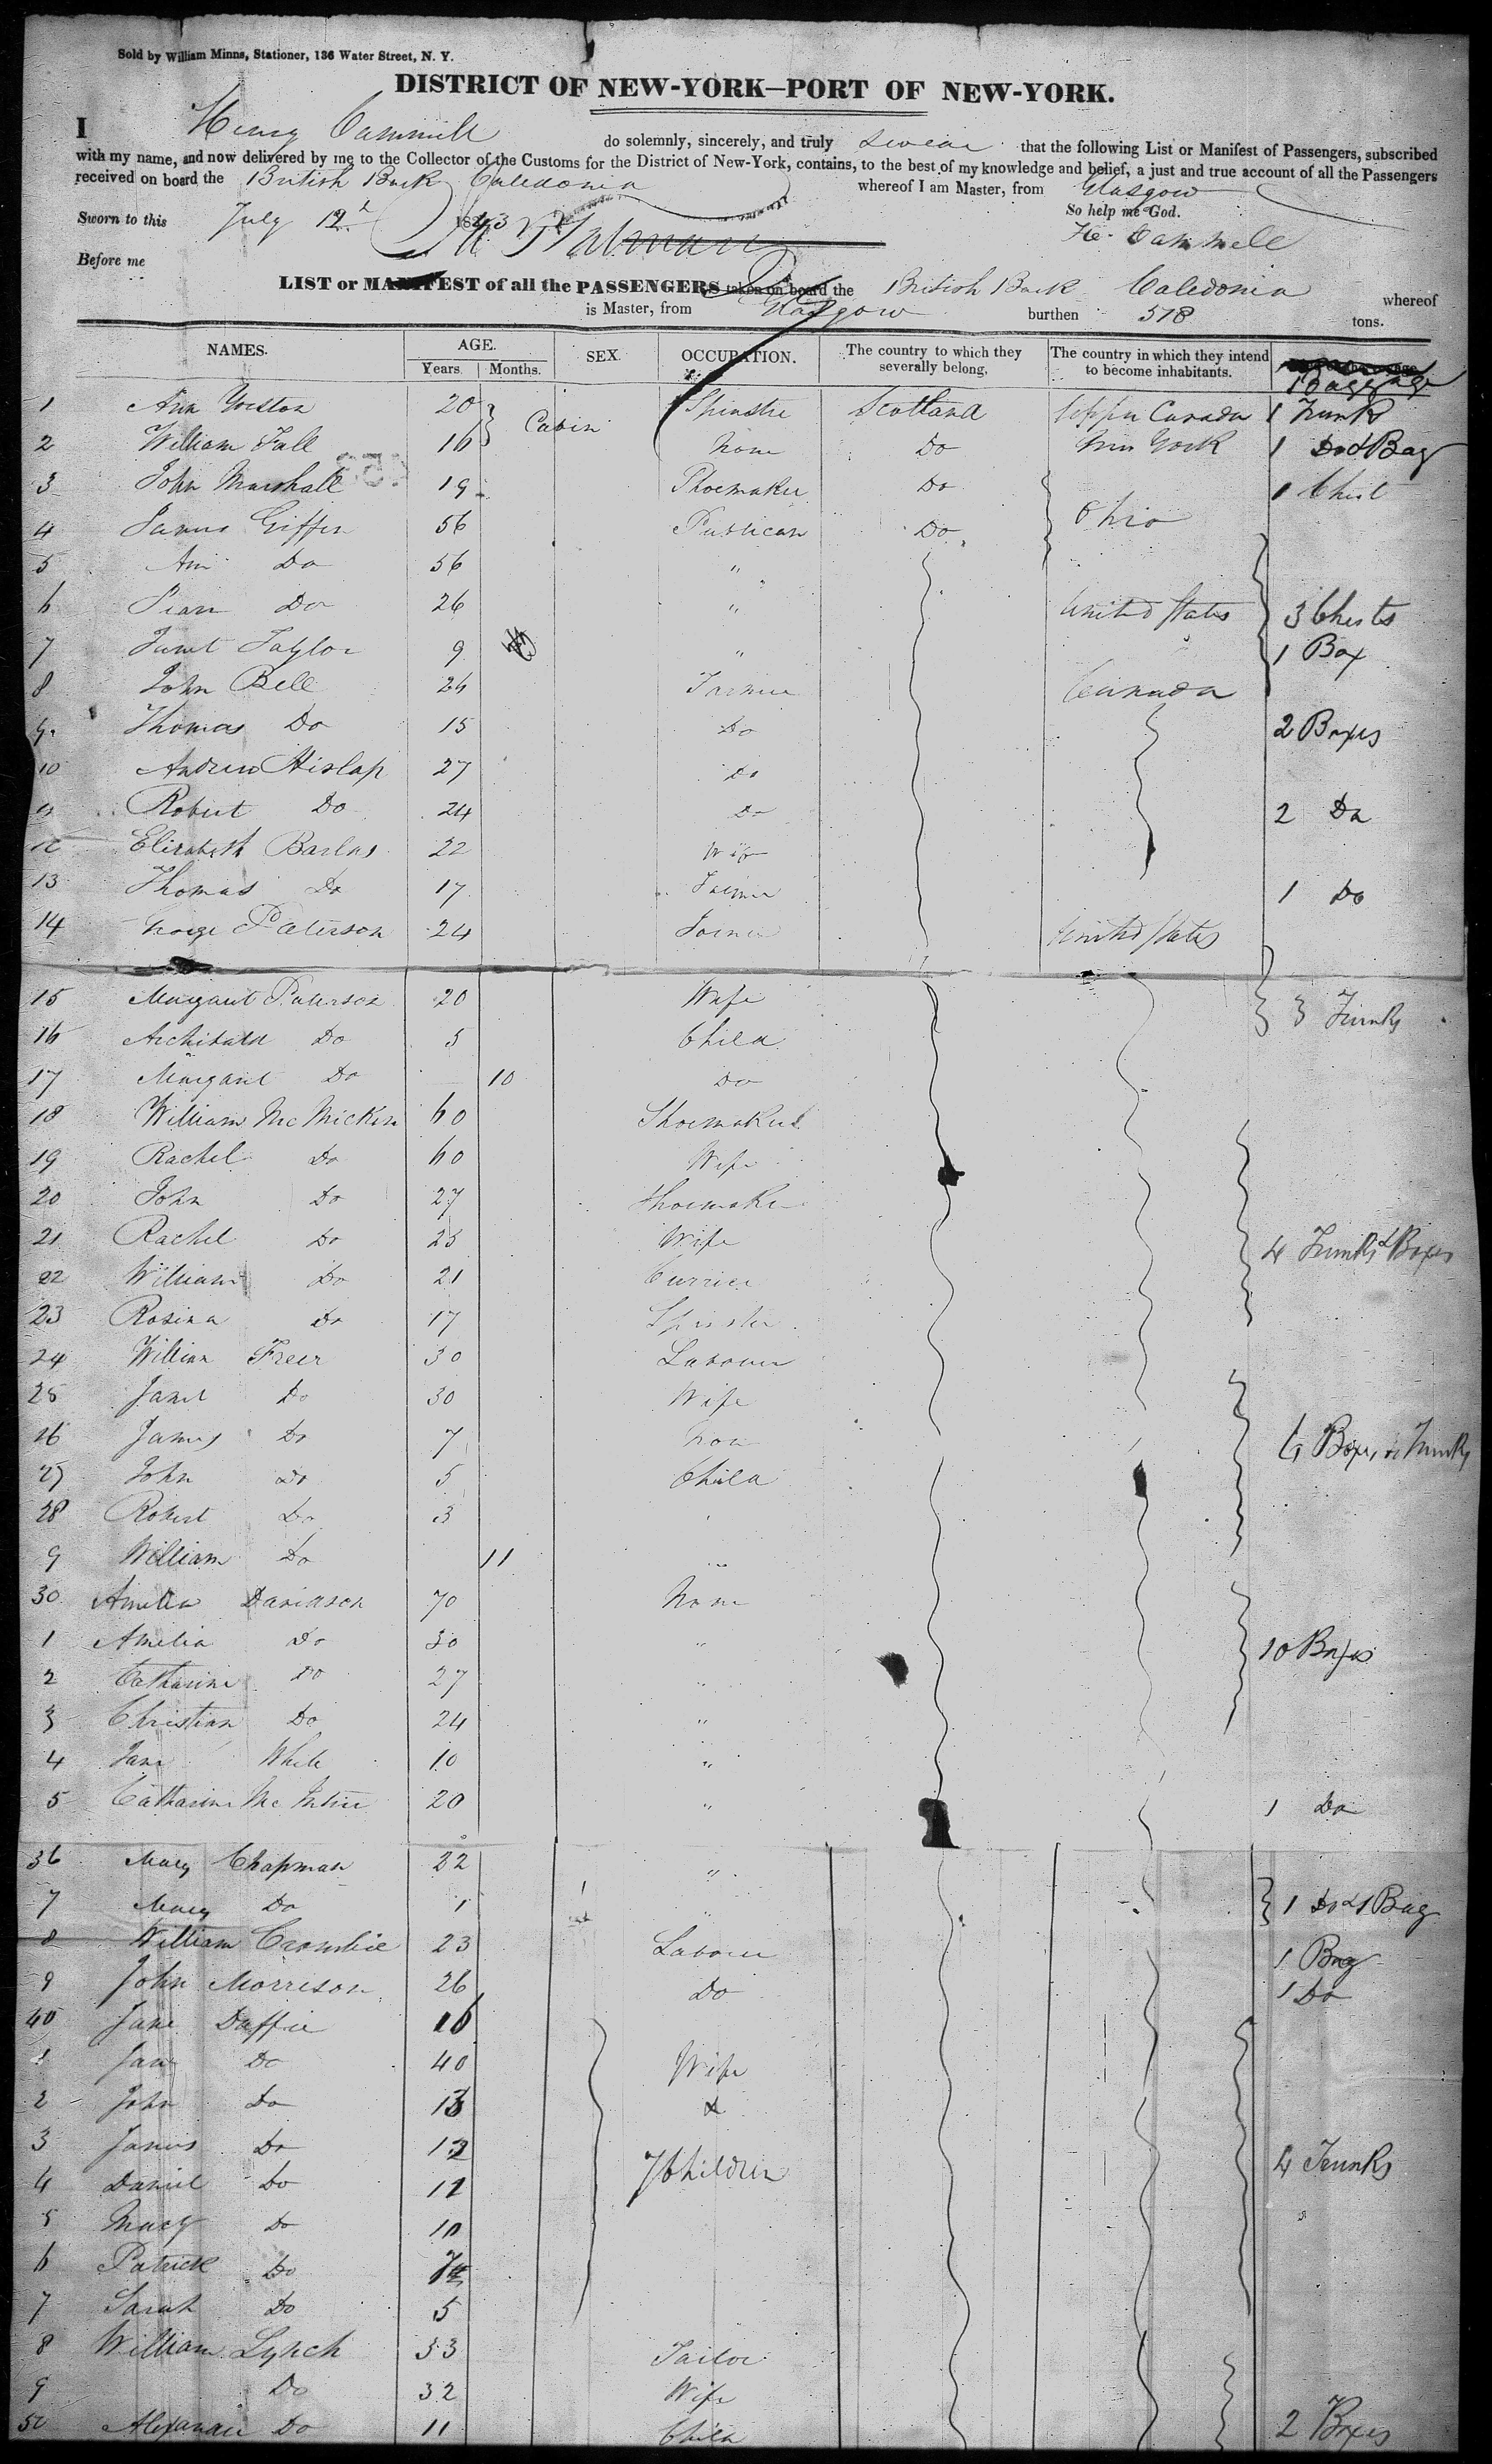 Sold by William Minns, Stationer, 136 Water Street, N. Y.
DISTRICT OF NEW-YORK—PORT OF NEW-YORK.
I Henry Cammell do solemnly, sincerely, and truly swear that the following List or Manifest of Passengers, subscribed
with my name, and now delivered by me to the Collector of the Customs for the District of New-York, contains, to the best of my knowledge and belief, a just and true account of all the Passengers
received on board the British Bark Caledonia whereof I am Master, from Glasgow
So help me God.
Sworn to this July 12 1843
H. Cammell
Before me
LIST or MANIFEST of all the PASSENGERS taken on board the British Bark Caledonia whereof
is Master, from Glasgow burthen 518 tons.
NAMES. AGE. SEX. OCCUPATION. The country to which they severally belong. The country in which they intend to become inhabitants. Baggage
Years. Months.
1 Ann Weston 20 Cabin Spinster Scotland Upper Canada 1 Trunk
2 William Fall 16 None Do New York 1 Do & Bag
3 John Marshall 19 Shoemaker Do 1 Chest
4 James Giffen 56 Publican Do Ohio
5 Ann Do 56 "
6 Jean Do 26 " United States 3 Chests
7 Janet Taylor 9 " 1 Box
8 John Bell 26 Farmer Canada
9 Thomas Do 15 Do 2 Boxes
10 Andrew Hislop 27 Do
11 Robert Do 24 Do 2 Do
12 Elizabeth Barlas 22 Wife
13 Thomas Do 17 Farmer 1 Do
14 George Paterson 24 Joiner United States
15 Margaret Paterson 20 Wife 3 Trunks
16 Archibald Do 3 Child
17 Margaret Do 10 Do
18 William McMicken 60 Shoemaker
19 Rachel Do 60 Wife
20 John Do 27 Shoemaker
21 Rachel Do 25 Wife 4 Trunks & Boxes
22 William Do 21 Currier
23 Rosina Do 17 Spinster
24 William Freer 30 Labourer
25 Janet Do 30 Wife
26 James Do 7 None 6 Boxes & Trunks
27 John Do 5 Child
28 Robert Do 3
9 William Do 11 "
30 Amelia Davidson 70 None
1 Amelia Do 30 " 10 Boxes
2 Catharine Do 27 "
3 Christian Do 24 "
4 Jane White 10 "
5 Catharine McIntire 20 " 1 Do
36 Mary Chapman 22 "
7 Mary Do 1 1 Do & 1 Bag
8 William Crombie 23 Labourer 1 Bag
9 John Morrison 26 Do 1 Do
40 Jane Daffie 16
1 Jane Do 40 Wife
2 John Do 13 &
3 James Do 12 7 Children 4 Trunks
4 Daniel Do 11
5 Mary Do 10
6 Patrick Do 7
7 Sarah Do 5
8 William Lynch 33 Tailor
9 Do 32 Wife
50 Alexander Do 11 Child 2 Boxes